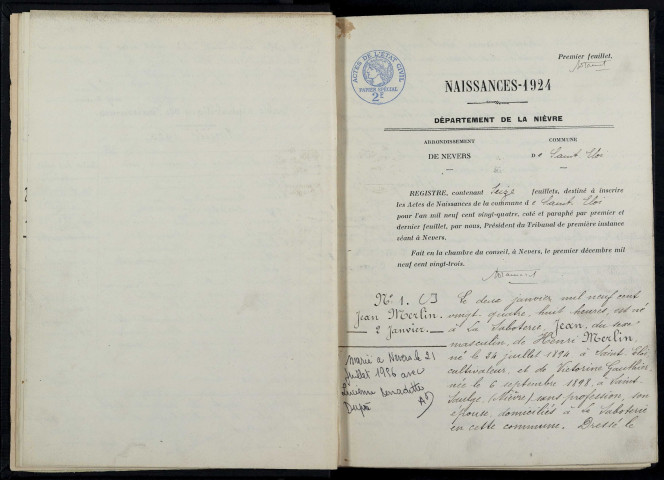 Premier feuillet.
ACTES DE L'ÉTAT CIVIL
PAPIER SPÉCIAL
2F
NAISSANCES-1924
DÉPARTEMENT DE LA NIÈVRE
ARRONDISSEMENT
DE NEVERS
COMMUNE
De Saint Eloi
REGISTRE, contenant Seize feuillets, destiné à inscrire
les Actes de Naissances de la commune de Saint Eloi
pour l'an mil neuf cent vingt-quatre, coté et paraphé par premier et
dernier feuillet, par nous, Président du Tribunal de première instance
séant à Nevers.
Fait en la chambre du conseil, à Nevers, le premier décembre mil
neuf cent vingt-trois.
N° 1.
Jean Merlin.
2 Janvier.
Marié à Nevers le 21
juillet 1956 avec
Bernadette
Le deux janvier mil neuf cent
vingt quatre, huit heures, est né
à La Saboterie, Jean, du sexe
masculin, de Henri Merlin,
né le 24 juillet 1894 à Saint Eloi,
cultivateur, et de Victorine Gauthier,
née le 6 septembre 1898, à Saint-
Saulge, (Nièvre) sans profession, son
épouse, domiciliés à La Saboterie
en cette commune. Dressé le